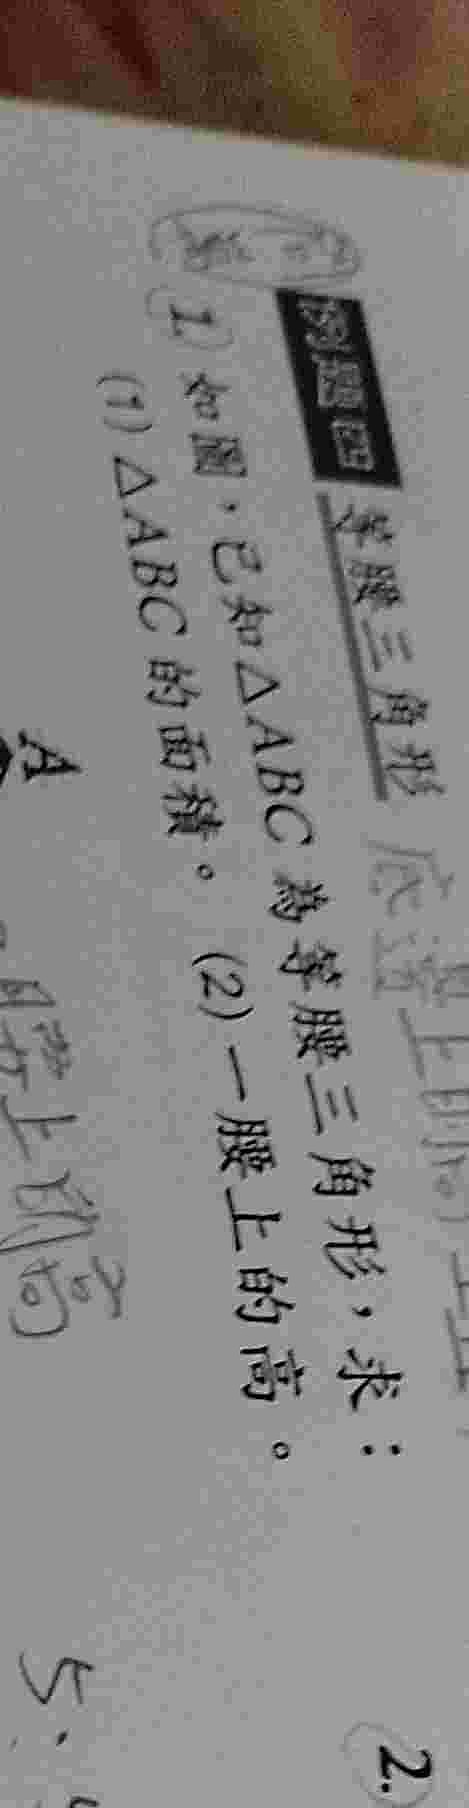 例題四 等腰三角形 底邊上的高
1 如圖，已知△ABC 為等腰三角形，求：
(1) △ABC 的面積。 (2) 一腰上的高。
A
腰上的高
5:
2.